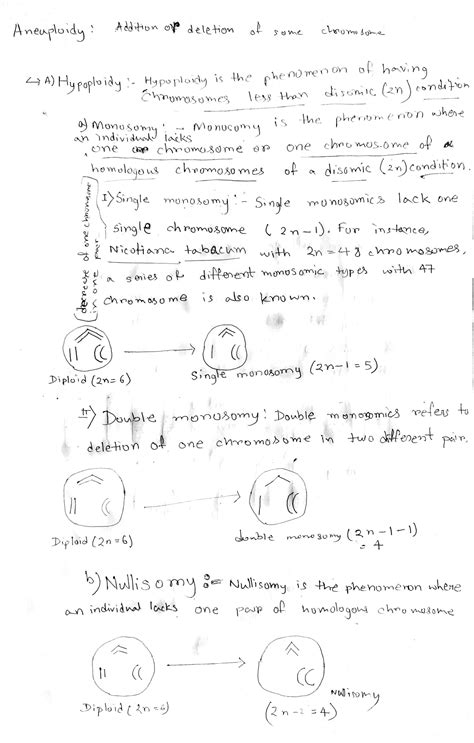 Aneuploidy: Addition or deletion of some chromosome
↳ A) Hypoploidy :- Hypoploidy is the phenomenon of having
chromosomes less than disomic (2n) condition
a) Monosomy :- Monosomy is the phenomenon where
an individual lacks
one chromosome or one chromosome of a
homologous chromosomes of a disomic (2n) condition.
decrease of one chromosome
in one pair
I) Single monosomy :- Single monosomics lack one
single chromosome (2n-1). For instance,
Nicotiana tabacum with 2n=48 chromosomes,
a series of different monosomic types with 47
chromosome is also known.
Diploid (2n=6)
Single monosomy (2n-1=5)
II) Double monosomy: Double monosomics refers to
deletion of one chromosome in two different pair.
Diploid (2n=6)
double monosomy (2n-1-1)
=4
b) Nullisomy := Nullisomy is the phenomenon where
an individual lacks one pair of homologous chromosome
Diploid (2n=6)
Nullisomy
(2n-2=4)